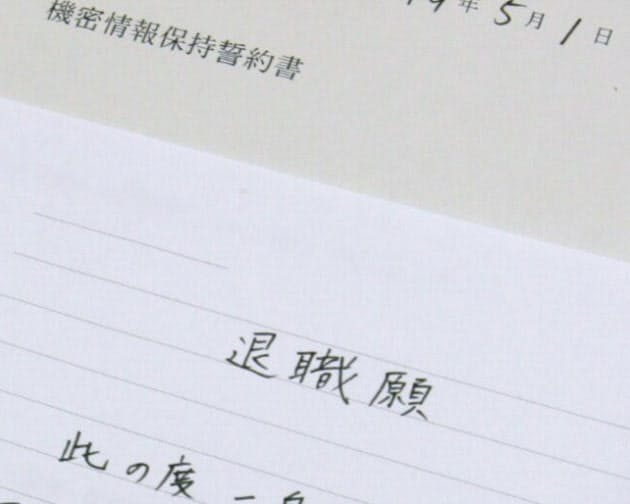 年5月1日
機密情報保持誓約書
退職願
此の度